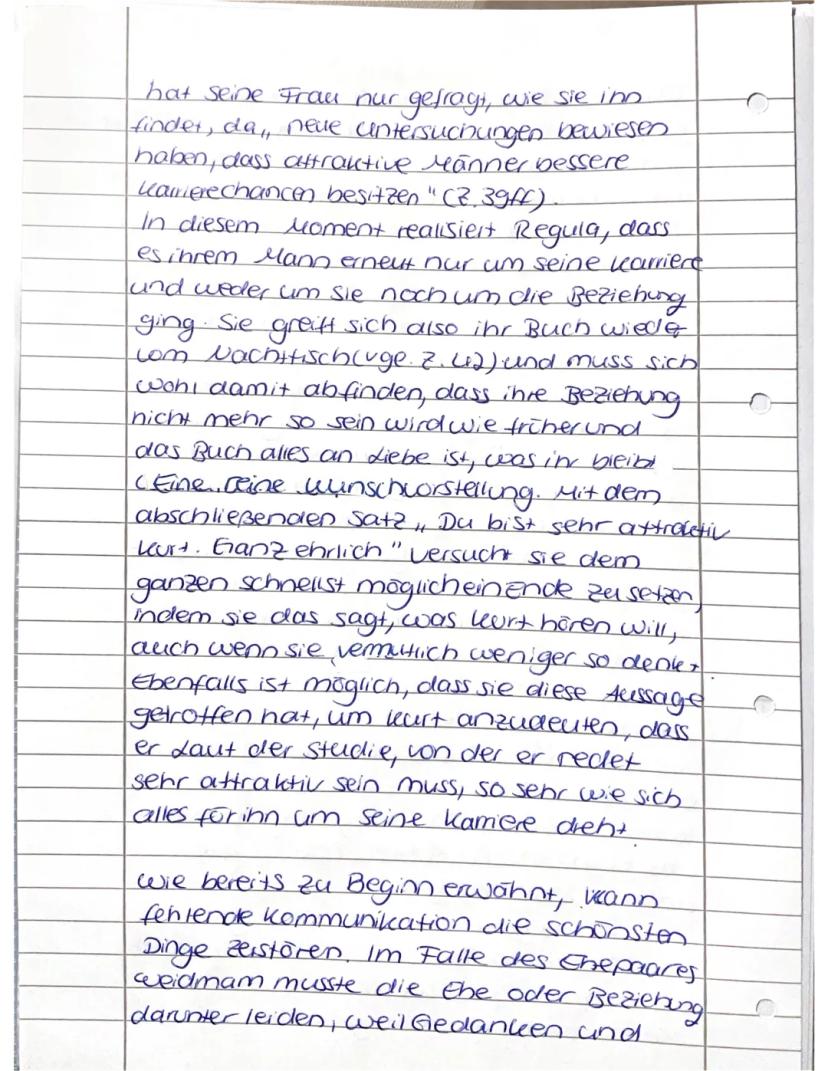 hat seine Frau nur gefragt, wie sie ihn
findet, da „ neue Untersuchungen bewiesen
haben, dass attraktive Männer bessere
Karrierechancen besitzen " (Z. 39ff).
In diesem Moment realisiert Regula, dass
es ihrem Mann erneut nur um seine Karriere
und weder um sie noch um die Beziehung
ging. Sie greift sich also ihr Buch wieder
vom Nachttisch (vgl. Z. 42) und muss sich
wohl damit abfinden, dass ihre Beziehung
nicht mehr so sein wird wie früher und
das Buch alles an Liebe ist, was ihr bleibt
(Eine reine Wunschvorstellung. Mit dem
abschließenden Satz „ Du bist sehr attraktiv
Kurt. Ganz ehrlich " versucht sie dem
ganzen schnellst möglich ein Ende zu setzen,
indem sie das sagt, was Kurt hören will,
auch wenn sie vermutlich weniger so denkt.
Ebenfalls ist möglich, dass sie diese Aussage
getroffen hat, um Kurt anzudeuten, dass
er Laut der Studie, von der er redet
sehr attraktiv sein muss, so sehr wie sich
alles für ihn um seine Karriere dreht.
Wie bereits zu Beginn erwähnt, kann
fehlende Kommunikation die schönsten
Dinge zerstören. Im Falle des Ehepaares
Weidmann musste die Ehe oder Beziehung
darunter leiden, weil Gedanken und